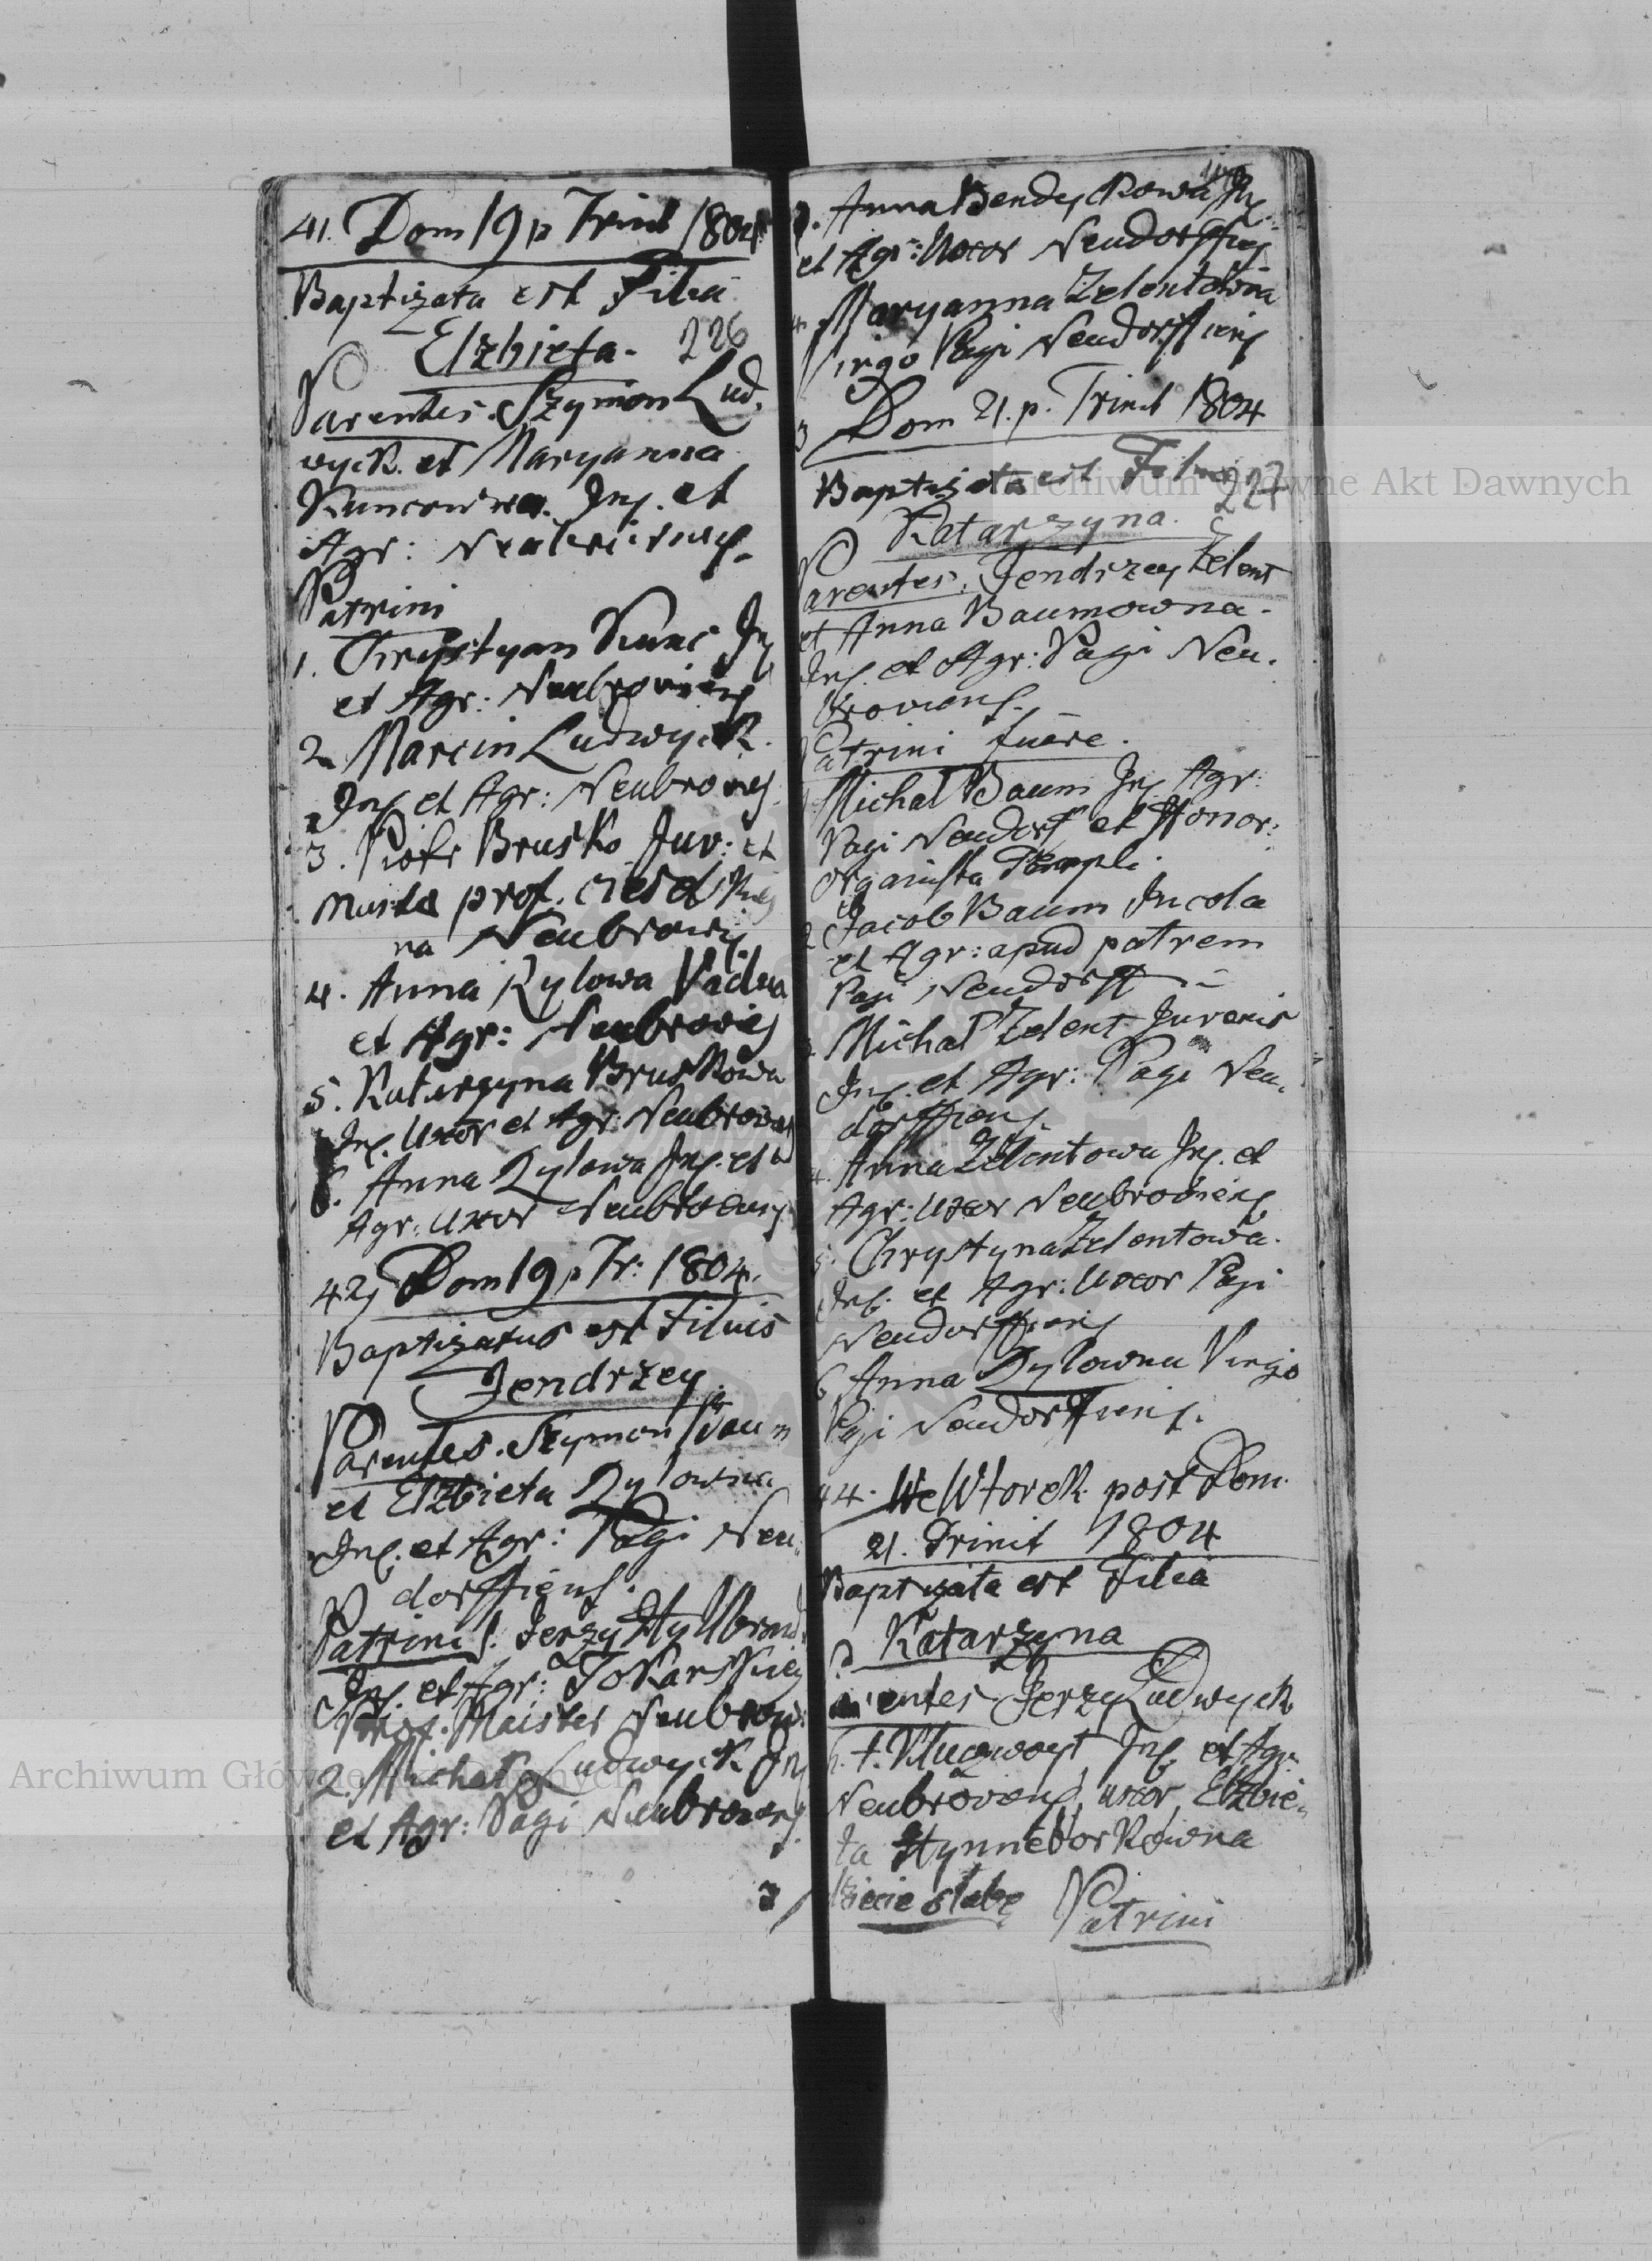 41. Dom 19 p Trinit 1804
Baptizata est Filia
Elzbieta. 226
Parentes. Szymon Lud,
wyck. et Maryanna
Kuncowna. Inq. et
Agr:
Patrini
1. Chrystyan Kunc Inq
et Agr: Neubroviens
2 Marcin Ludwyck.
Inq. et Agr: Neubroviens
3. Piotr Brusko Juv: et
prof.
na Neubrowij
4. Anna Rylowa Vidua
et Agr: Neubrovies
5. Katarzyna Bruskowa
Inq. Uxor et Agr: Neubroviens
6. Anna Rylowa Inq. et
Agr. Uxor Neubroviens
42, Dom 19 p Tr: 1804.
Baptizatus est Filius
Jendrzey.
Parentes. Szymon Baum
et Elzbieta Rylowna
Inq. et Agr: Pagi Neu,,
dorffiens.
Patrini 1. Jerzy Hyllbrand
Inq. et Agr: Tokarskiey
Prof. Maister Neubrow:
2. Michał Ludwyck Inq
et Agr: Pagi Neubroviens
3
3. Anna Bendyskowa Inq.
et Agr: Uxor Neudorffiens
4. Maryanna Zelentowna
Virgo Pagi Neudorffiens
3 Dom 21. p. Trinit 1804
Baptizata est Filia 227
Katarzyna.
Parentes. Jendrzey Zelent
et Anna Baumowna.
Inq. et Agr: Pagi Neu,
broviens.
Patrini fuere.
Michał Baum Inq. Agr:
Pagi Neudorf et Honor:
Organista Templi.
2 Jacob Baum Incola
et Agr: apud patrem
Pagi Neudorff
Michał Zelent Juvenis
Inq. et Agr: Pagi Neu,
dorffiens.
4. Anna Zelentowa Inq. et
Agr: Uxor Neubroviens
5. Chrystyna Zelentowa.
Inq. et Agr: Uxor Pagi
Neudorffiens
6 Anna Rylowna Virgo
Pagi Neudorffiens.
44. We Wtorek post Dom.
21. Trinit 1804
Baptizata est Filia
Katarzyna
Parentes Jerzy Ludwyck
Inq. et Agr.
Neubroviens, uxor, Elzbie,,
ta Hynneborkowna
Patrini
Archiwum Główne Akt Dawnych
Archiwum Główne Akt Dawnych